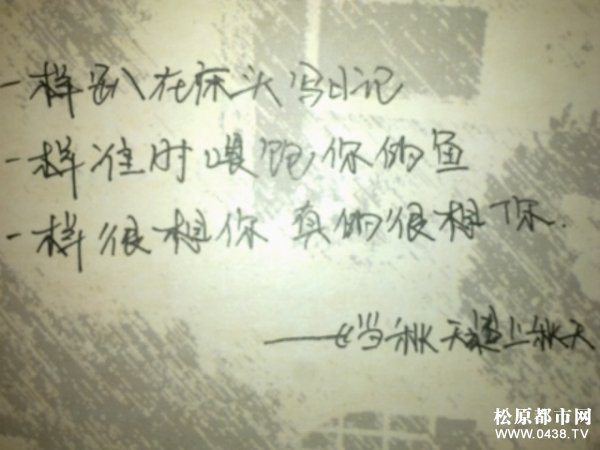 一样趴在床头写日记
一样准时喂饱你的鱼
一样很想你 真的很想你.
——《当秋天遇上秋天
松原都市网
WWW.0438.TV